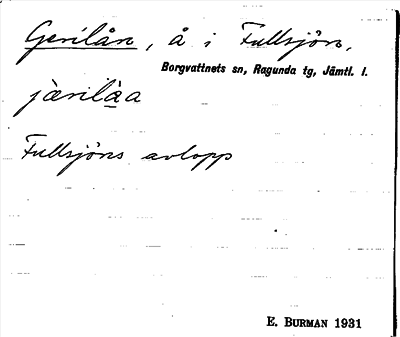 Gerilån, å i Fullsjön,
Borgvattnets sn, Ragunda tg, Jämtl. l.
jærilàa
Fullsjöns avlopp
E. BURMAN 1931